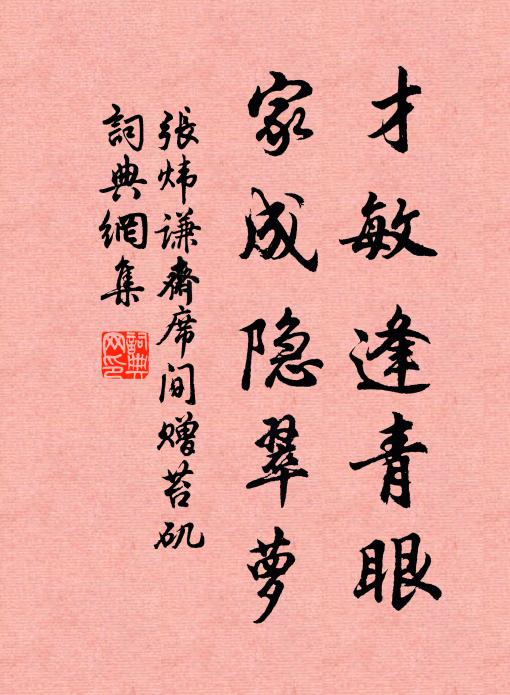 才敏逢青眼
家成隐翠萝
張炜谦齋席间赠苔矶
詞典網集
詞典网印